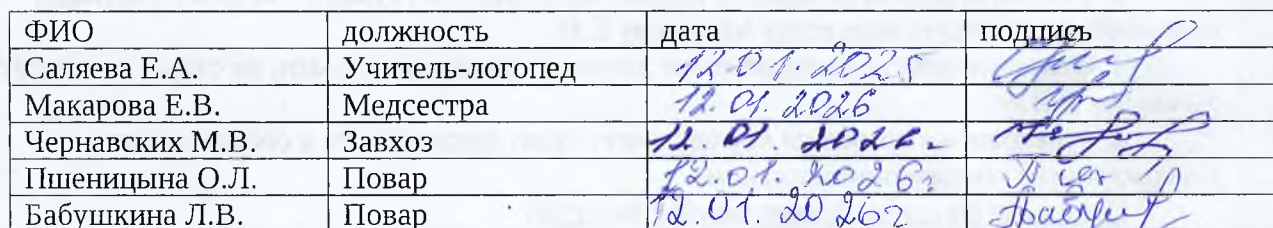 ФИО должность дата подпись
Саляева Е.А. Учитель-логопед 12.01.2025
Макарова Е.В. Медсестра 12.01.2026
Чернавских М.В. Завхоз 12.01.2026г
Пшеницына О.Л. Повар 12.01.2026г
Бабушкина Л.В. Повар 12.01.2026г